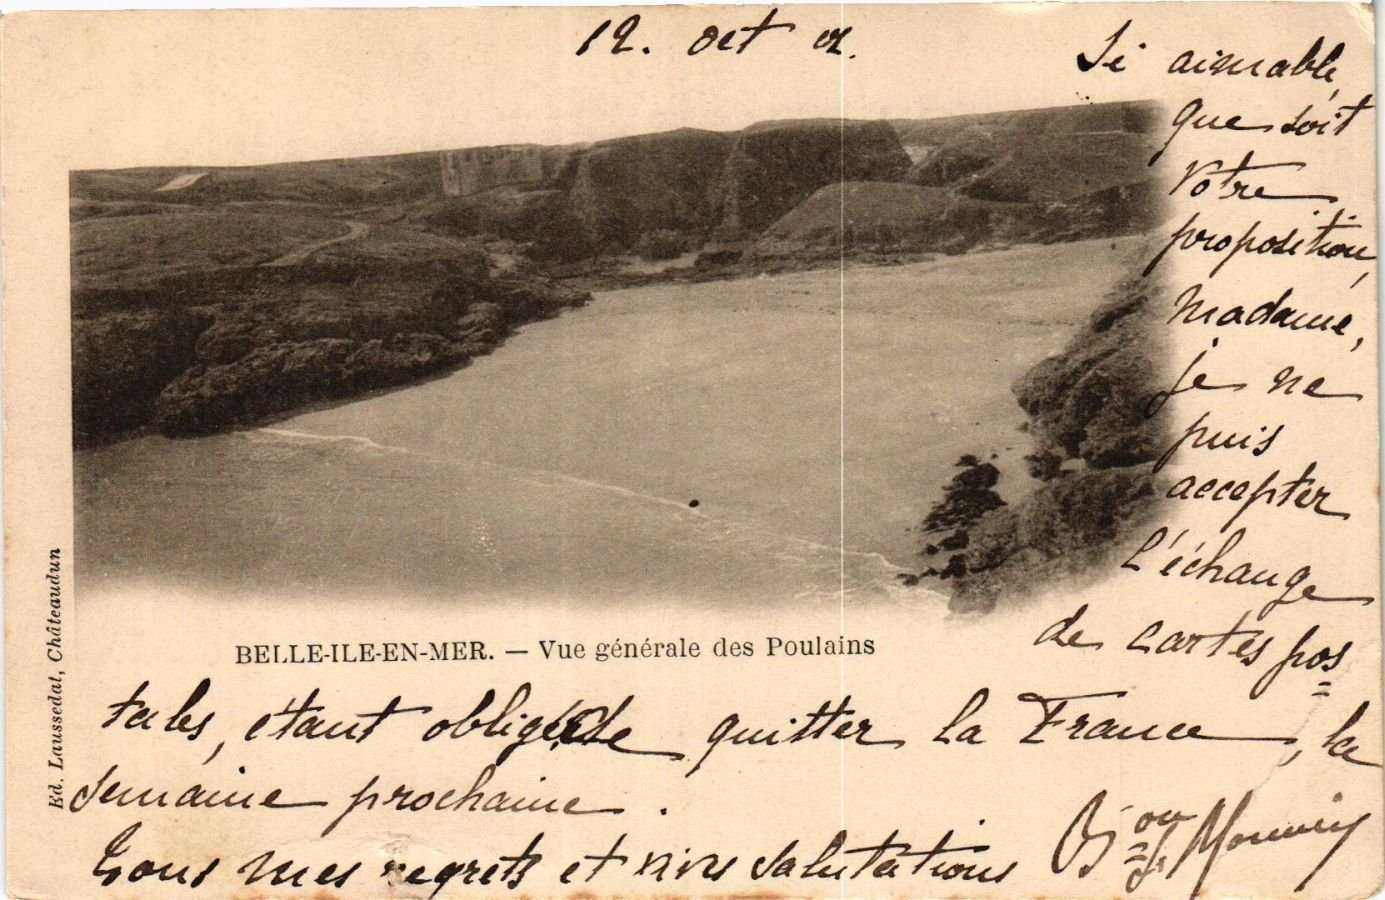 12. oct 02.
Si aimable,
que soit
votre
proposition,
Madame,
je ne
puis
accepter
l'échange
de cartes pos
BELLE-ILE-EN-MER. — Vue générale des Poulains
Ed. Laussedat, Châteaudun
tales, étant obligée de quitter la France, la
semaine prochaine.
Tous mes regrets et vives salutations